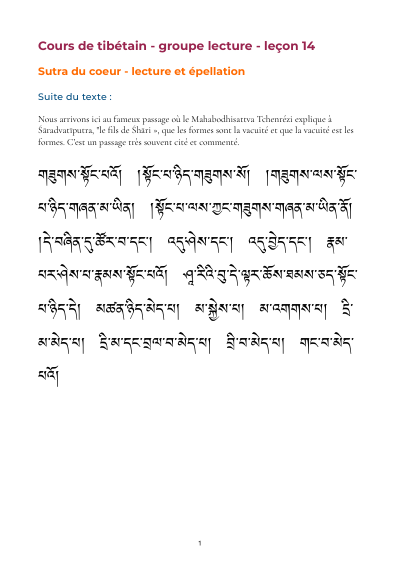 Cours de tibétain - groupe lecture - leçon 14
Sutra du coeur - lecture et épellation
Suite du texte :
Nous arrivons ici au fameux passage où le Mahabodhisattva Tchenrézi explique à
Śāradvatīputra, "le fils de Shāri », que les formes sont la vacuité et que la vacuité est les
formes. C'est un passage très souvent cité et commenté.
གཟུགས་སྟོང་པའོ། །སྟོང་པ་ཉིད་གཟུགས་སོ། །གཟུགས་ལས་སྟོང་
པ་ཉིད་གཞན་མ་ཡིན། །སྟོང་པ་ལས་ཀྱང་གཟུགས་གཞན་མ་ཡིན་ནོ།
།དེ་བཞིན་དུ་ཚོར་བ་དང་། འདུ་ཤེས་དང་། འདུ་བྱེད་དང་། རྣམ་
པར་ཤེས་པ་རྣམས་སྟོང་པའོ། ཤཱ་རིའི་བུ་དེ་ལྟར་ཆོས་ཐམས་ཅད་སྟོང་
པ་ཉིད་དེ། མཚན་ཉིད་མེད་པ། མ་སྐྱེས་པ། མ་འགགས་པ། དྲི་
མ་མེད་པ། དྲི་མ་དང་བྲལ་བ་མེད་པ། བྲི་བ་མེད་པ། གང་བ་མེད་
པའོ།
1